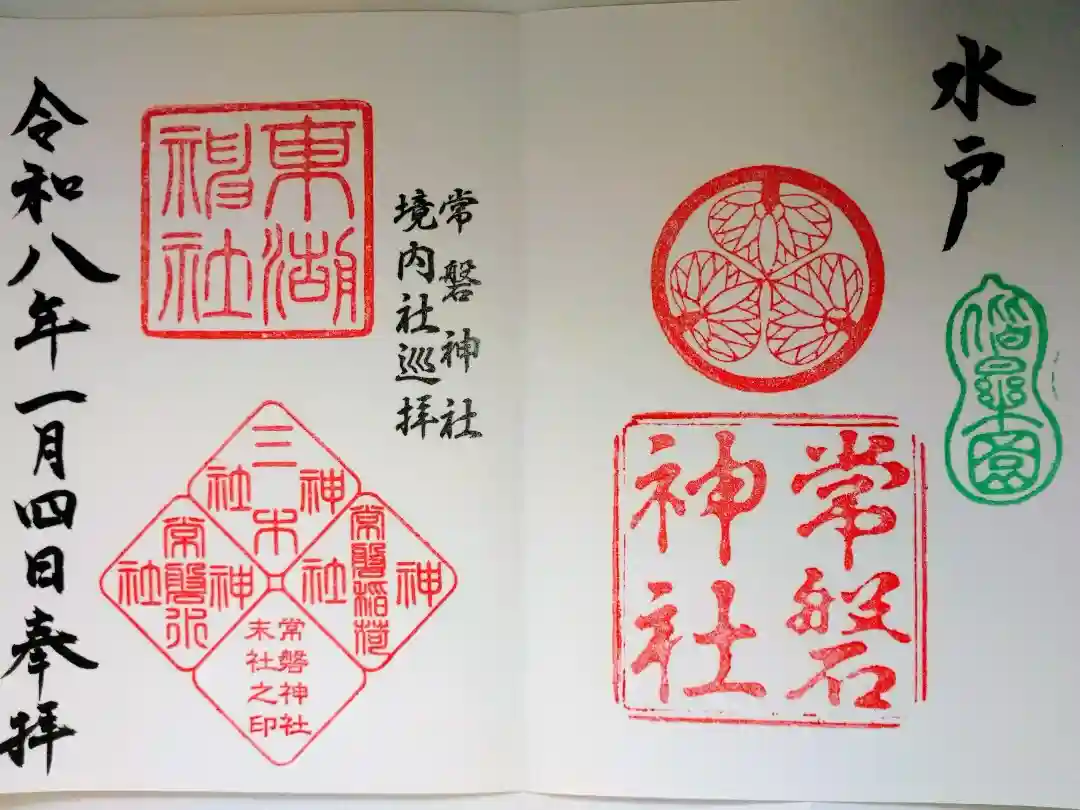 水戸
偕楽園
常磐
神社
常磐神社
境内社巡拝
東湖
神社
三木
神社
常磐稲荷
神社
常磐水
神社
常磐神社
末社之印
令和八年一月四日奉拝